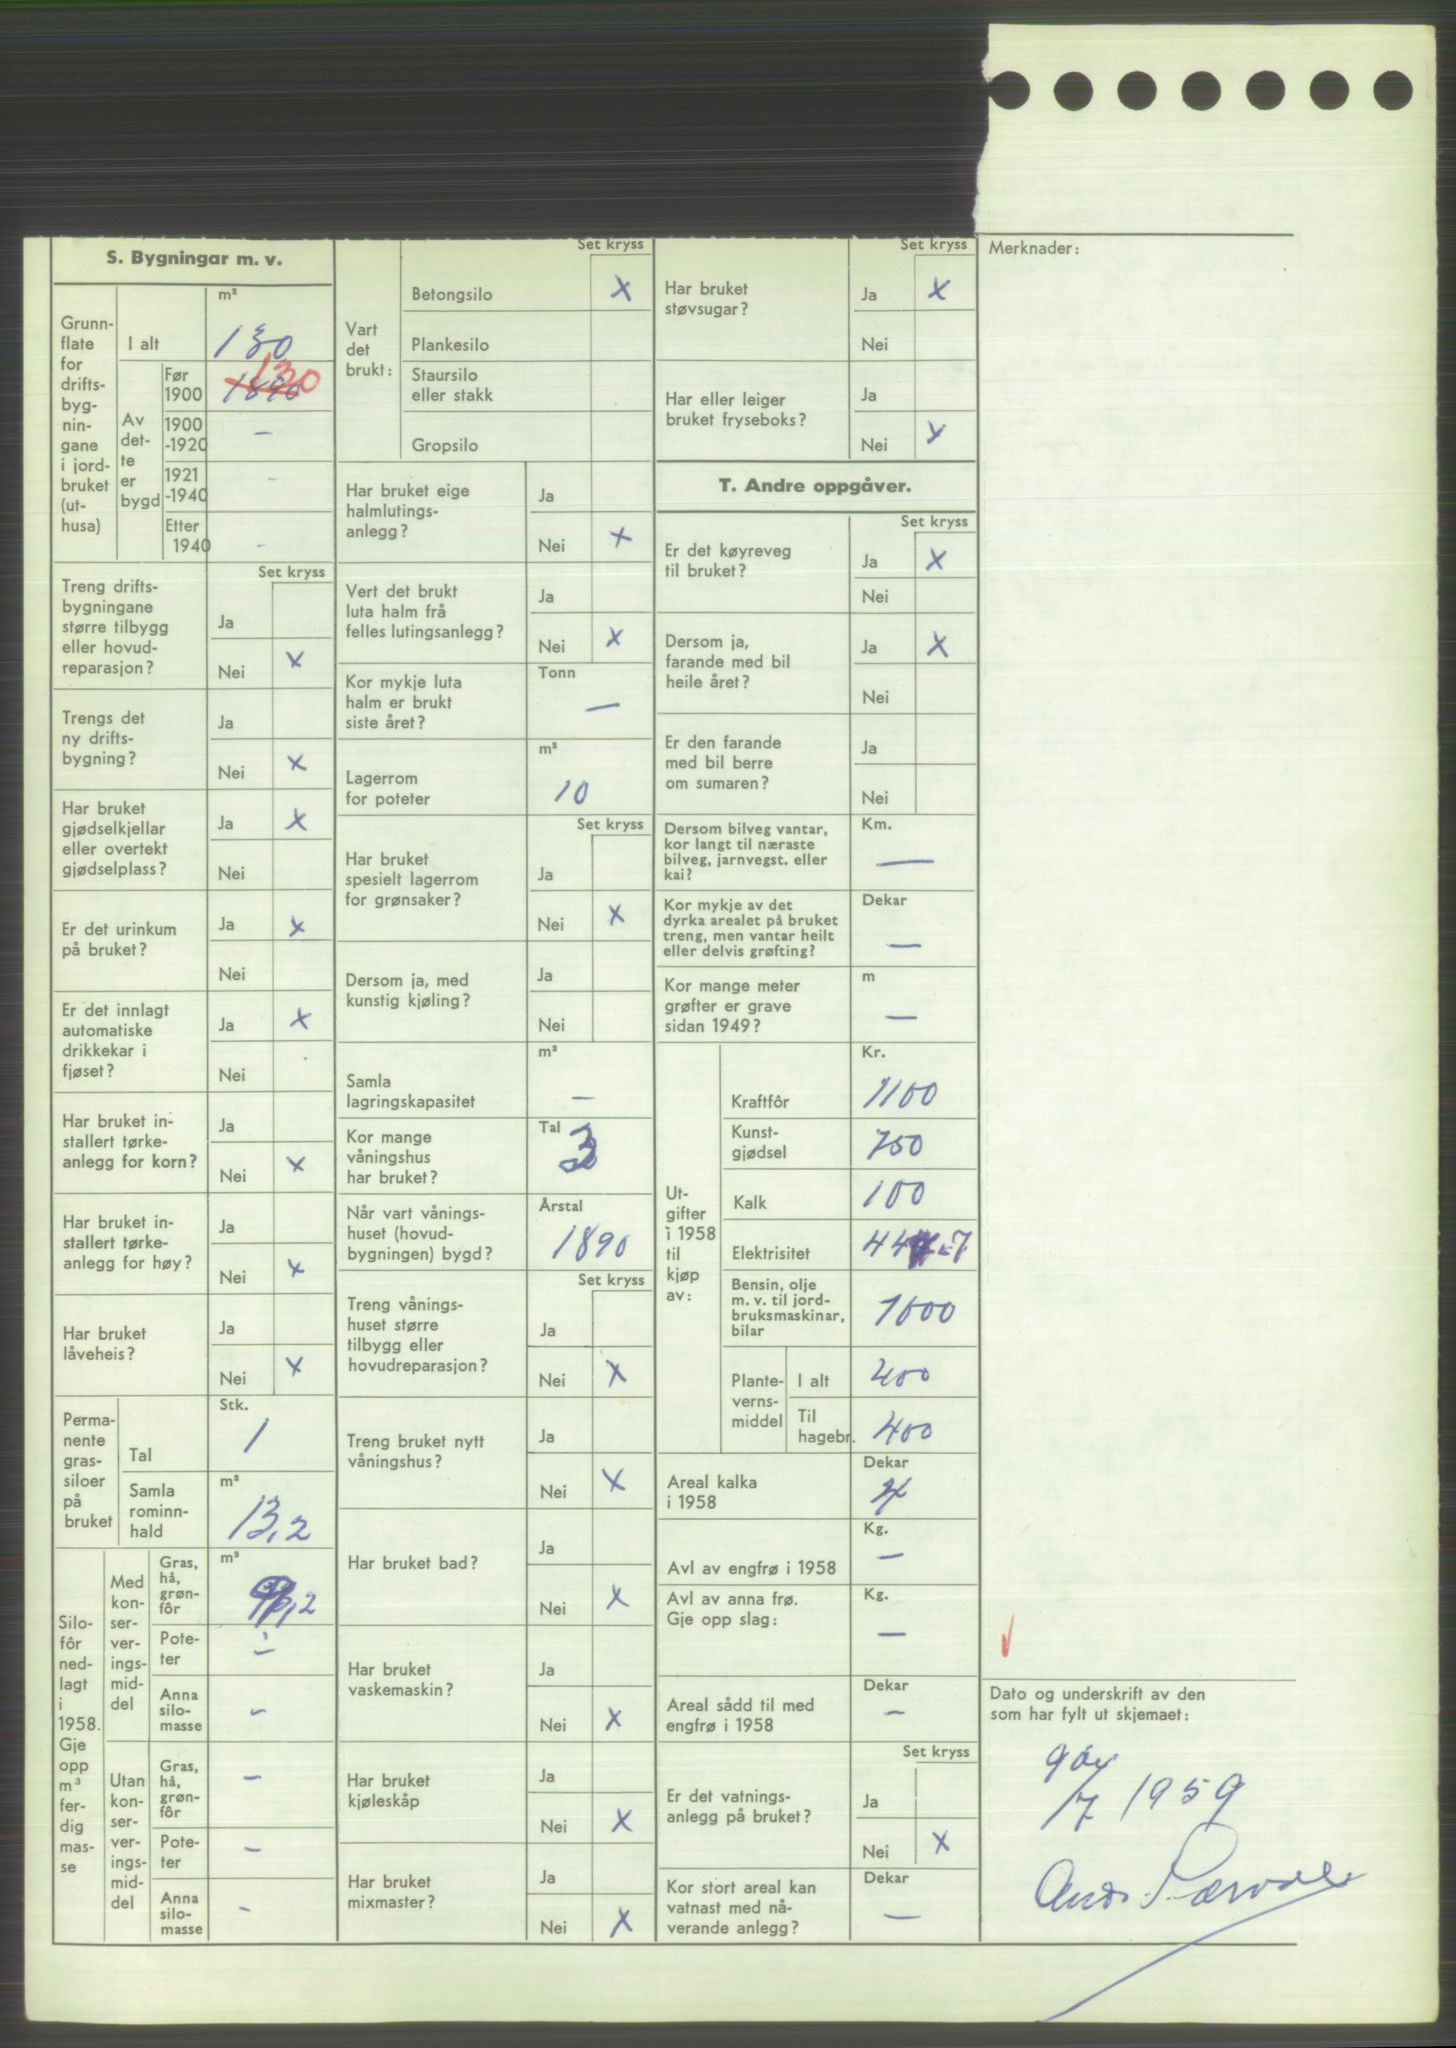 S. Bygningar m. v.
Grunn-
flate
for
drifts-
byg-
nin-
gane
i jord-
bruket
(ut-
husa)
m²
I alt
130
Av
det-
te
er
bygd
Før
1900
1890
130
1900
-1920
—
1921
-1940
-
Etter
1940
-
Set kryss
Treng drifts-
bygningane
større tilbygg
eller hovud-
reparasjon?
Ja
Nei x
Trengs det
ny drifts-
bygning?
Ja
Nei x
Har bruket
gjødselkjellar
eller overtekt
gjødselplass?
Ja x
Nei
Er det urinkum
på bruket?
Ja x
Nei
Er det innlagt
automatiske
drikkekar i
fjøset?
Ja x
Nei
Har bruket in-
stallert tørke-
anlegg for korn?
Ja
Nei x
Har bruket in-
stallert tørke-
anlegg for høy?
Ja
Nei x
Har bruket
låveheis?
Ja
Nei x
Perma-
nente
gras-
siloer
på
bruket
Stk.
Tal
1
m³
Samla
rominn-
hald
13,2
Silo-
fôr
ned-
lagt
i
1958.
Gje
opp
m³
fer-
dig
mas-
se
Med
kon-
ser-
ver-
ings-
mid-
del
m³
Gras,
hå,
grøn-
fôr
Pote-
ter
—
Anna
silo-
masse
-
Utan
kon-
ser-
ver-
ings-
mid-
del
Gras,
hå,
grøn-
fôr
-
Pote-
ter
-
Anna
silo-
masse
-
Set kryss
Vart
det
brukt:
Betongsilo x
Plankesilo
Staursilo
eller stakk
Gropsilo
Har bruket eige
halmlutings-
anlegg?
Ja
Nei x
Vert det brukt
luta halm frå
felles lutingsanlegg?
Ja
Nei x
Kor mykje luta
halm er brukt
siste året?
Tonn
—
Lagerrom
for poteter
m²
10
Set kryss
Har bruket
spesielt lagerrom
for grønsaker?
Ja
Nei x
Dersom ja, med
kunstig kjøling?
Ja
Nei
Samla
lagringskapasitet
m³
—
Kor mange
våningshus
har bruket?
Tal
Når vart vånings-
huset (hovud-
bygningen) bygd?
Årstal
1890
Set kryss
Treng vånings-
huset større
tilbygg eller
hovudreparasjon?
Ja
Nei x
Treng bruket nytt
våningshus?
Ja
Nei x
Har bruket bad?
Ja
Nei x
Har bruket
vaskemaskin?
Ja
Nei x
Har bruket
kjøleskåp
Ja
Nei x
Har bruket
mixmaster?
Ja
Nei x
Set kryss
Har bruket
støvsugar?
Ja x
Nei
Har eller leiger
bruket fryseboks?
Ja
Nei x
T. Andre oppgåver.
Set kryss
Er det køyreveg
til bruket?
Ja x
Nei
Dersom ja,
farande med bil
heile året?
Ja x
Nei
Er den farande
med bil berre
om sumaren?
Ja
Nei
Dersom bilveg vantar,
kor langt til næraste
bilveg, jarnvegst. eller
kai?
Km.
—
Kor mykje av det
dyrka arealet på bruket
treng, men vantar heilt
eller delvis grøfting?
Dekar
—
Kor mange meter
grøfter er grave
sidan 1949?
m
—
Ut-
gifter
i 1958
til
kjøp
av:
Kr.
Kraftfôr
1100
Kunst-
gjødsel
750
Kalk
100
Elektrisitet
Bensin, olje
m. v. til jord-
bruksmaskinar,
bilar
1000
Plante-
verns-
middel
I alt
400
Til
hagebr.
400
Areal kalka
i 1958
Dekar
Avl av engfrø i 1958
Kg.
—
Avl av anna frø.
Gje opp slag:
Kg.
—
Areal sådd til med
engfrø i 1958
Dekar
—
Set kryss
Er det vatnings-
anlegg på bruket?
Ja
Nei x
Kor stort areal kan
vatnast med nå-
verande anlegg?
Dekar
—
Merknader:
Dato og underskrift av den
som har fylt ut skjemaet:
/7 1959